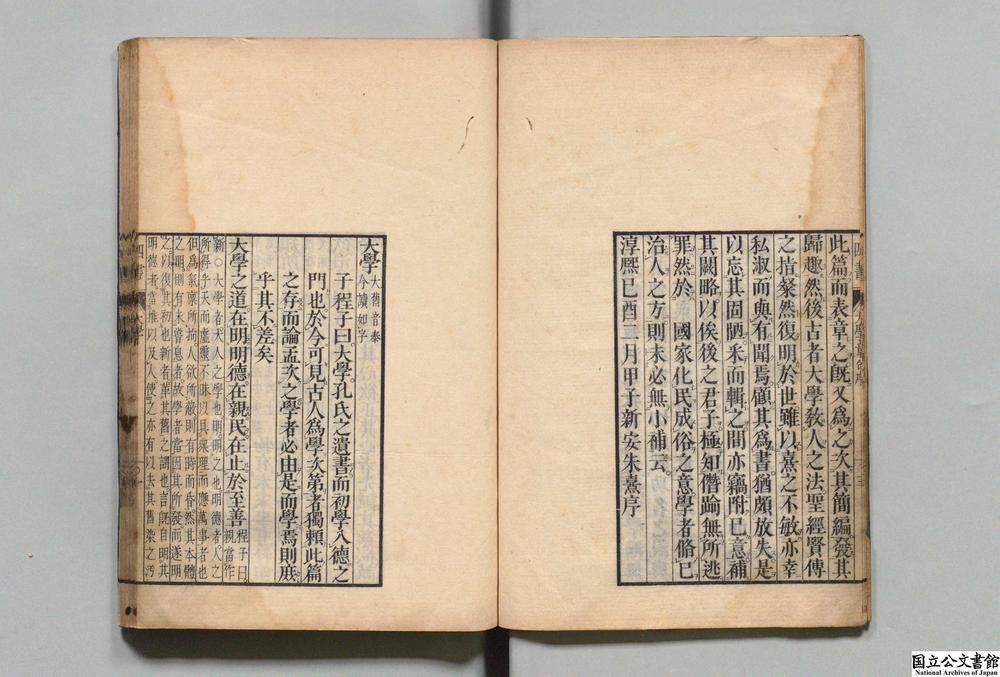 此篇而表章之旣又爲之次其簡編發其
歸趣然後古者大學敎人之法聖經賢傳
之指粲然復明於世雖以熹之不敏亦幸
私淑而與有聞焉顧其爲書猶頗放失是
以忘其固陋釆而輯之間亦竊附已意補
其闕略以俟後之君子極知僭踰無所逃
罪然於 國家化民成俗之意學者脩已
治人之方則未必無小補云
淳熈已酉二月甲子新安朱熹序
大學 大舊音泰
今讀如字
子程子曰大學孔氏之遺書而初學入德之
門也於今可見古人爲學次第者獨賴此篇
之存而論孟次之學者必由是而學焉則庶
乎其不差矣
大學之道在明明德在親民在止於至善 程子曰
親當作
新○大學者大人之學也明明之也明德者人之
所得乎天而虛靈不昧以具衆理而應萬事者也
但爲氣稟所拘人欲所蔽則有時而昏然其本體
之明則有未嘗息者故學者當因其所發而遂明
之以復其初也新者革其舊之謂也言旣自明其
明德又當推以及人使之亦有以去其舊染之汚
国立公文書館
National Archives of Japan